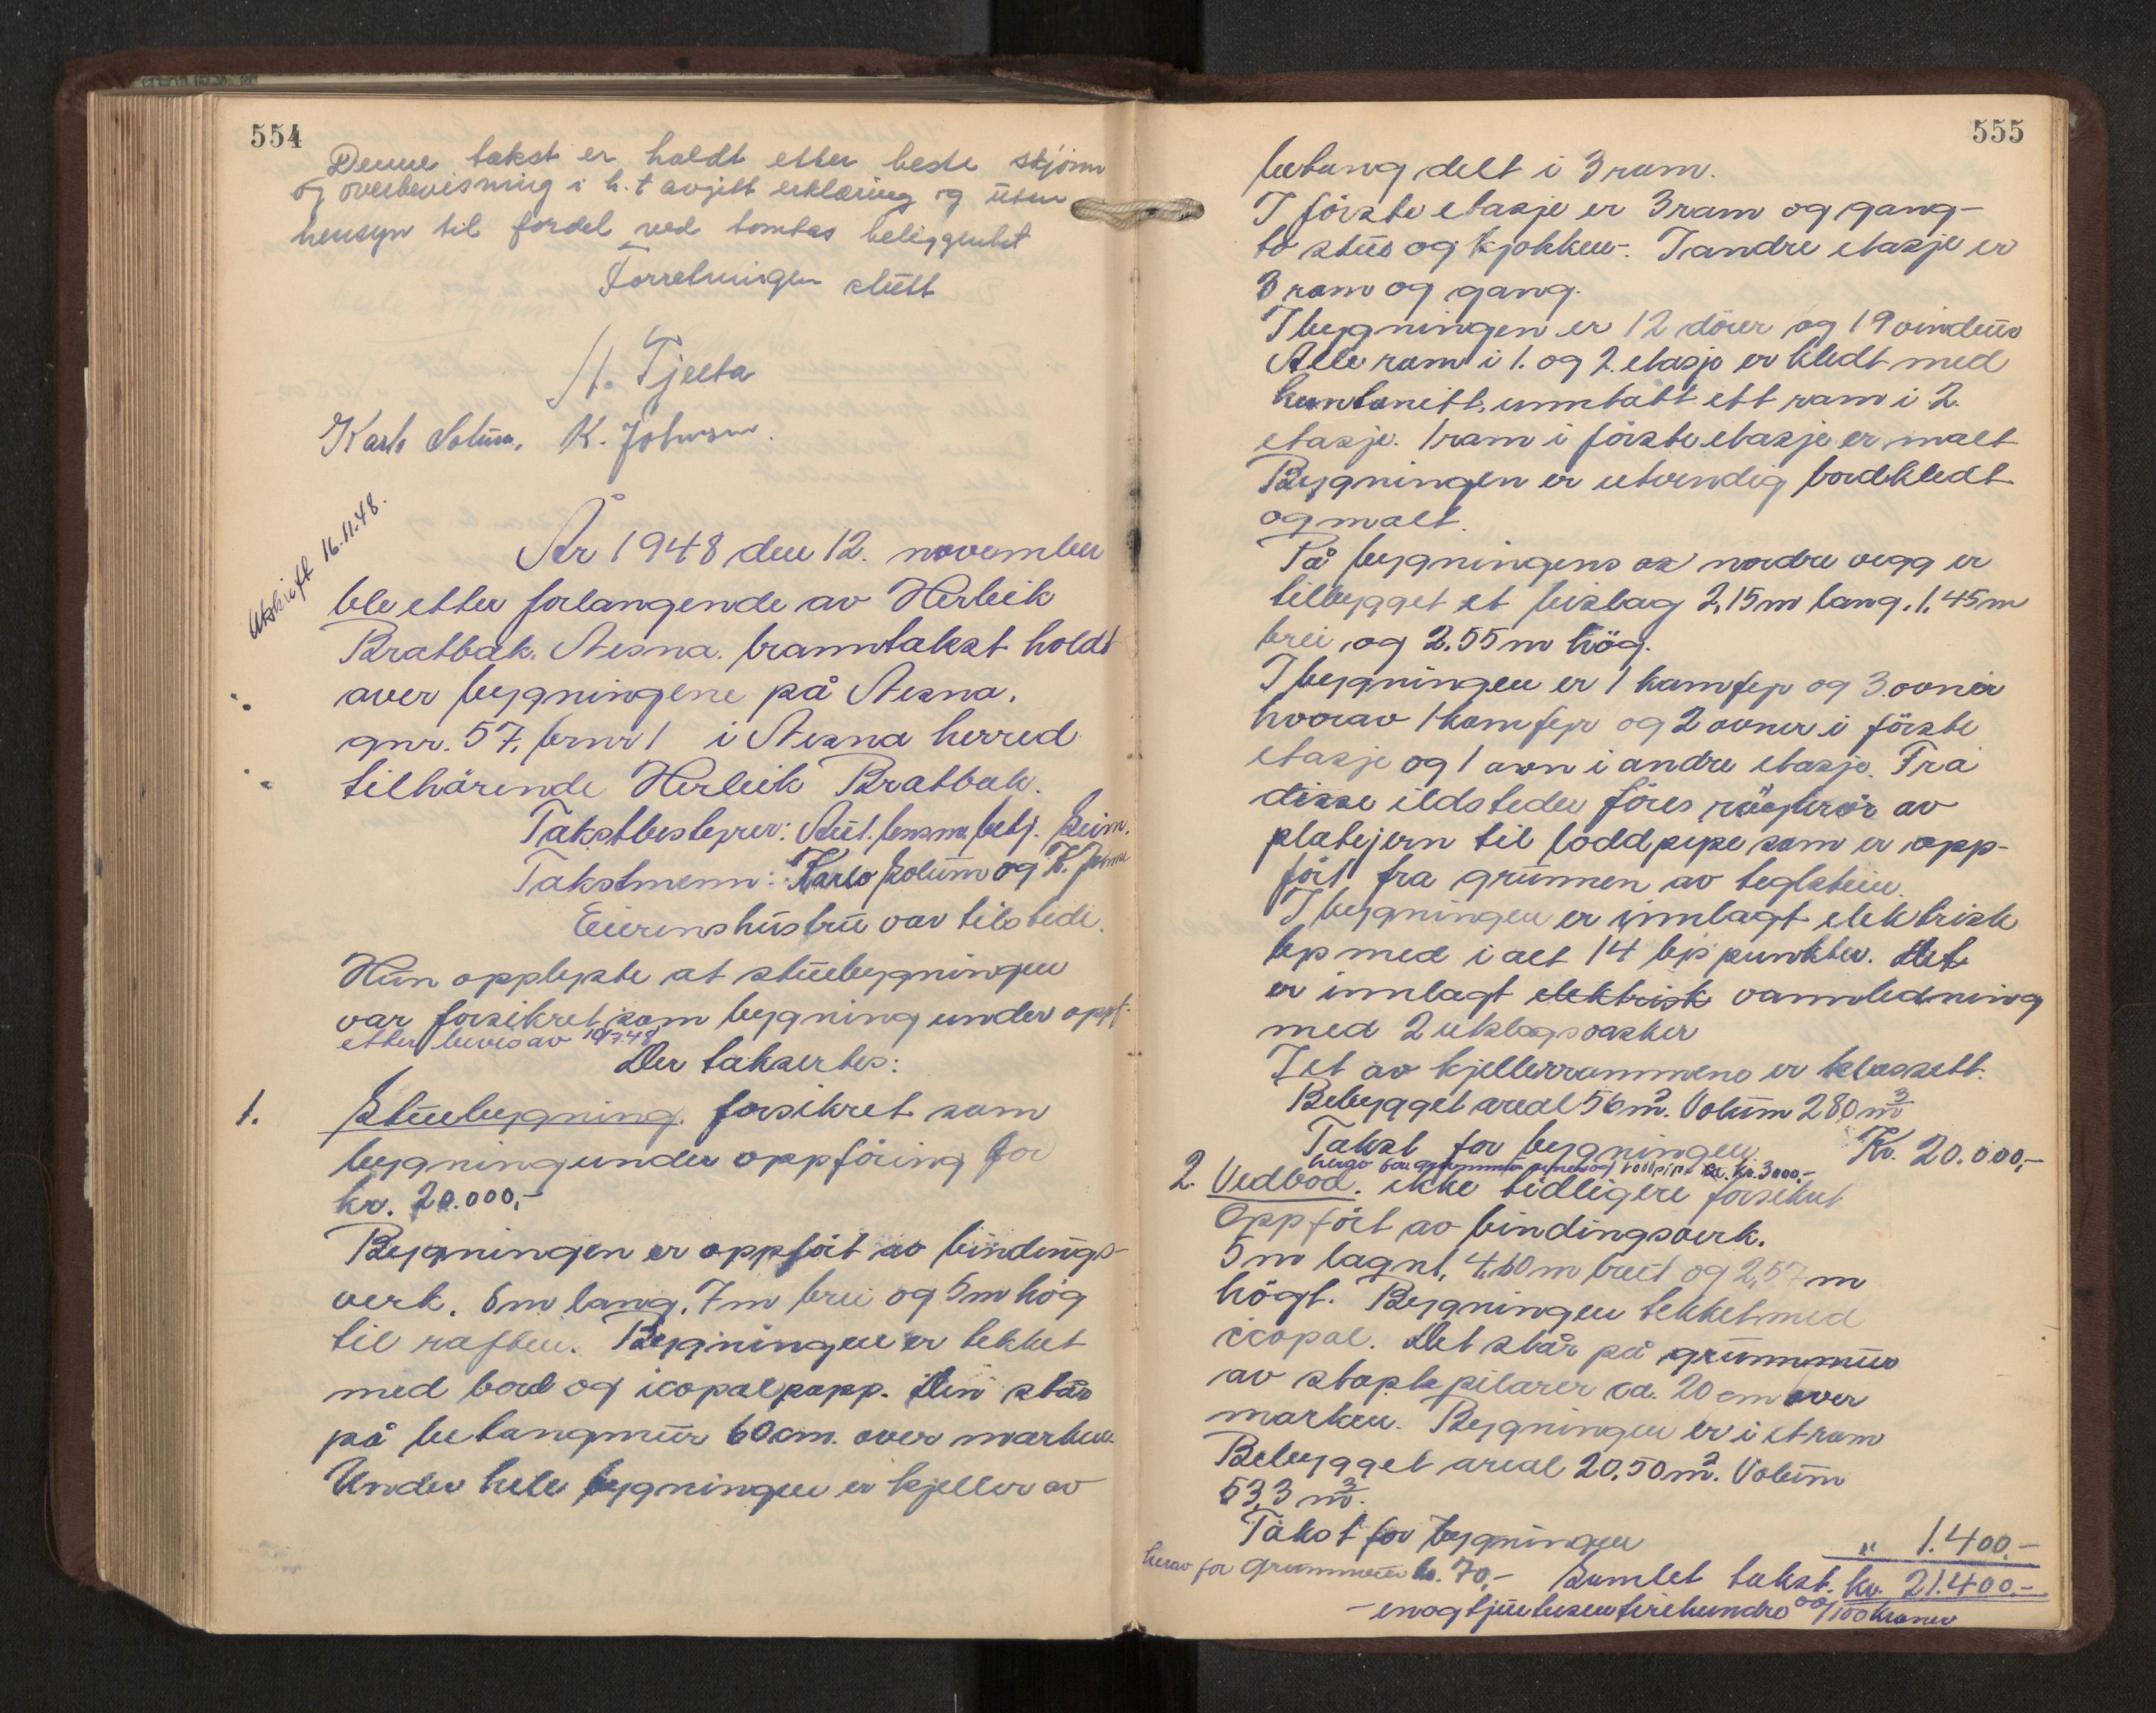 554
Denne takst er holdt etter beste skjönn
og overbevisning i h.t avgitt erklæring og uten
hensyn til fordel ved tomtas beliggenhet
Forretningen slutt
Karlo Solum. K. Johnsen.
Utskrift 16.11.48.
År 1948 den 12. november
ble etter forlangende av Herleik
Bratbak. Nesna. branntakst holdt
over bygningene på Nesna.
gnr. 57, brnr 1 i Nesna herred
tilhörende Herleik Bratbak.
Takstbestyrer: lensm. betj.
Takstmenn: Karlo Solum og K. Johnsen
Eierens hustru var tilstede.
Hun opplyste at stuebygningen
var forsikret som bygning under oppf.
etter bevis av 19/7.48
Der taksertes:
1. Stuebygning. forsikret som
bygning under oppföring for
kr. 20.000,-
Bygningen er oppfört av bindings-
verk. 8m lang. 7m brei og 5m hög
til raften. Bygningen er tekket
med bord og icopalpapp. Den står
på betongmur 60 cm. over marken.
Under hele bygningen er kjeller av
555
betong delt i 3 rom.
I förste etasje er 3 rom og gang-
to stuer og kjökken. I andre etasje er
3 rom og gang.
I bygningen er 12 dörer og 19 vinduer
Alle rom i 1. og 2. etasje er kledt med
huntonitt, unntatt ett rom i 2.
etasje. 1 rom i förste etasje er malt
Bygningen er utvendig bordkledt
og malt.
På bygningens nordre vegg er
tilbygget et bislag 2,15m lang, 1,45m
brei og 2.55m hög.
I bygningen er 1 komfyr og 3 ovner
hvorav 1 komfyr og 2 ovner i förste
etasje og 1 ovn i andre etasje. Fra
disse ildsteder föres rögrör av
platejern til loddpipe som er opp-
fört fra grunnen av teglstein.
I bygningen er innlagt elektrisk
lys med i alt 14 lys punkter. Det
er innlagt elektrisk vannledning
med 2 utslagsvasker
I et av kjellerrommene er klossett.
Bebygget areal 56 m². Volum 280 m³
Takst for bygningen Kr. 20.000,-
herav for grunnmur og loddpipe kr. 3000,-
2. Vedbod. ikke tidligere forsikret
Oppfört av bindingsverk.
5m lagnt, 4,10m breit og 2,57m
högt. Bygningen tekket med
icopal. Det står på grunnmur
av stopte pilarer ca. 20 cm over
marken. Bygningen er i et rom
Bebygget areal 20,50 m². Volum
53,3 m³.
Takst for bygningen " 1.400,-
herav for grunnmur kr. 70,- Samlet takst. kr. 21.400,-
- enogtjuetusenfirehundre 00/100 kroner